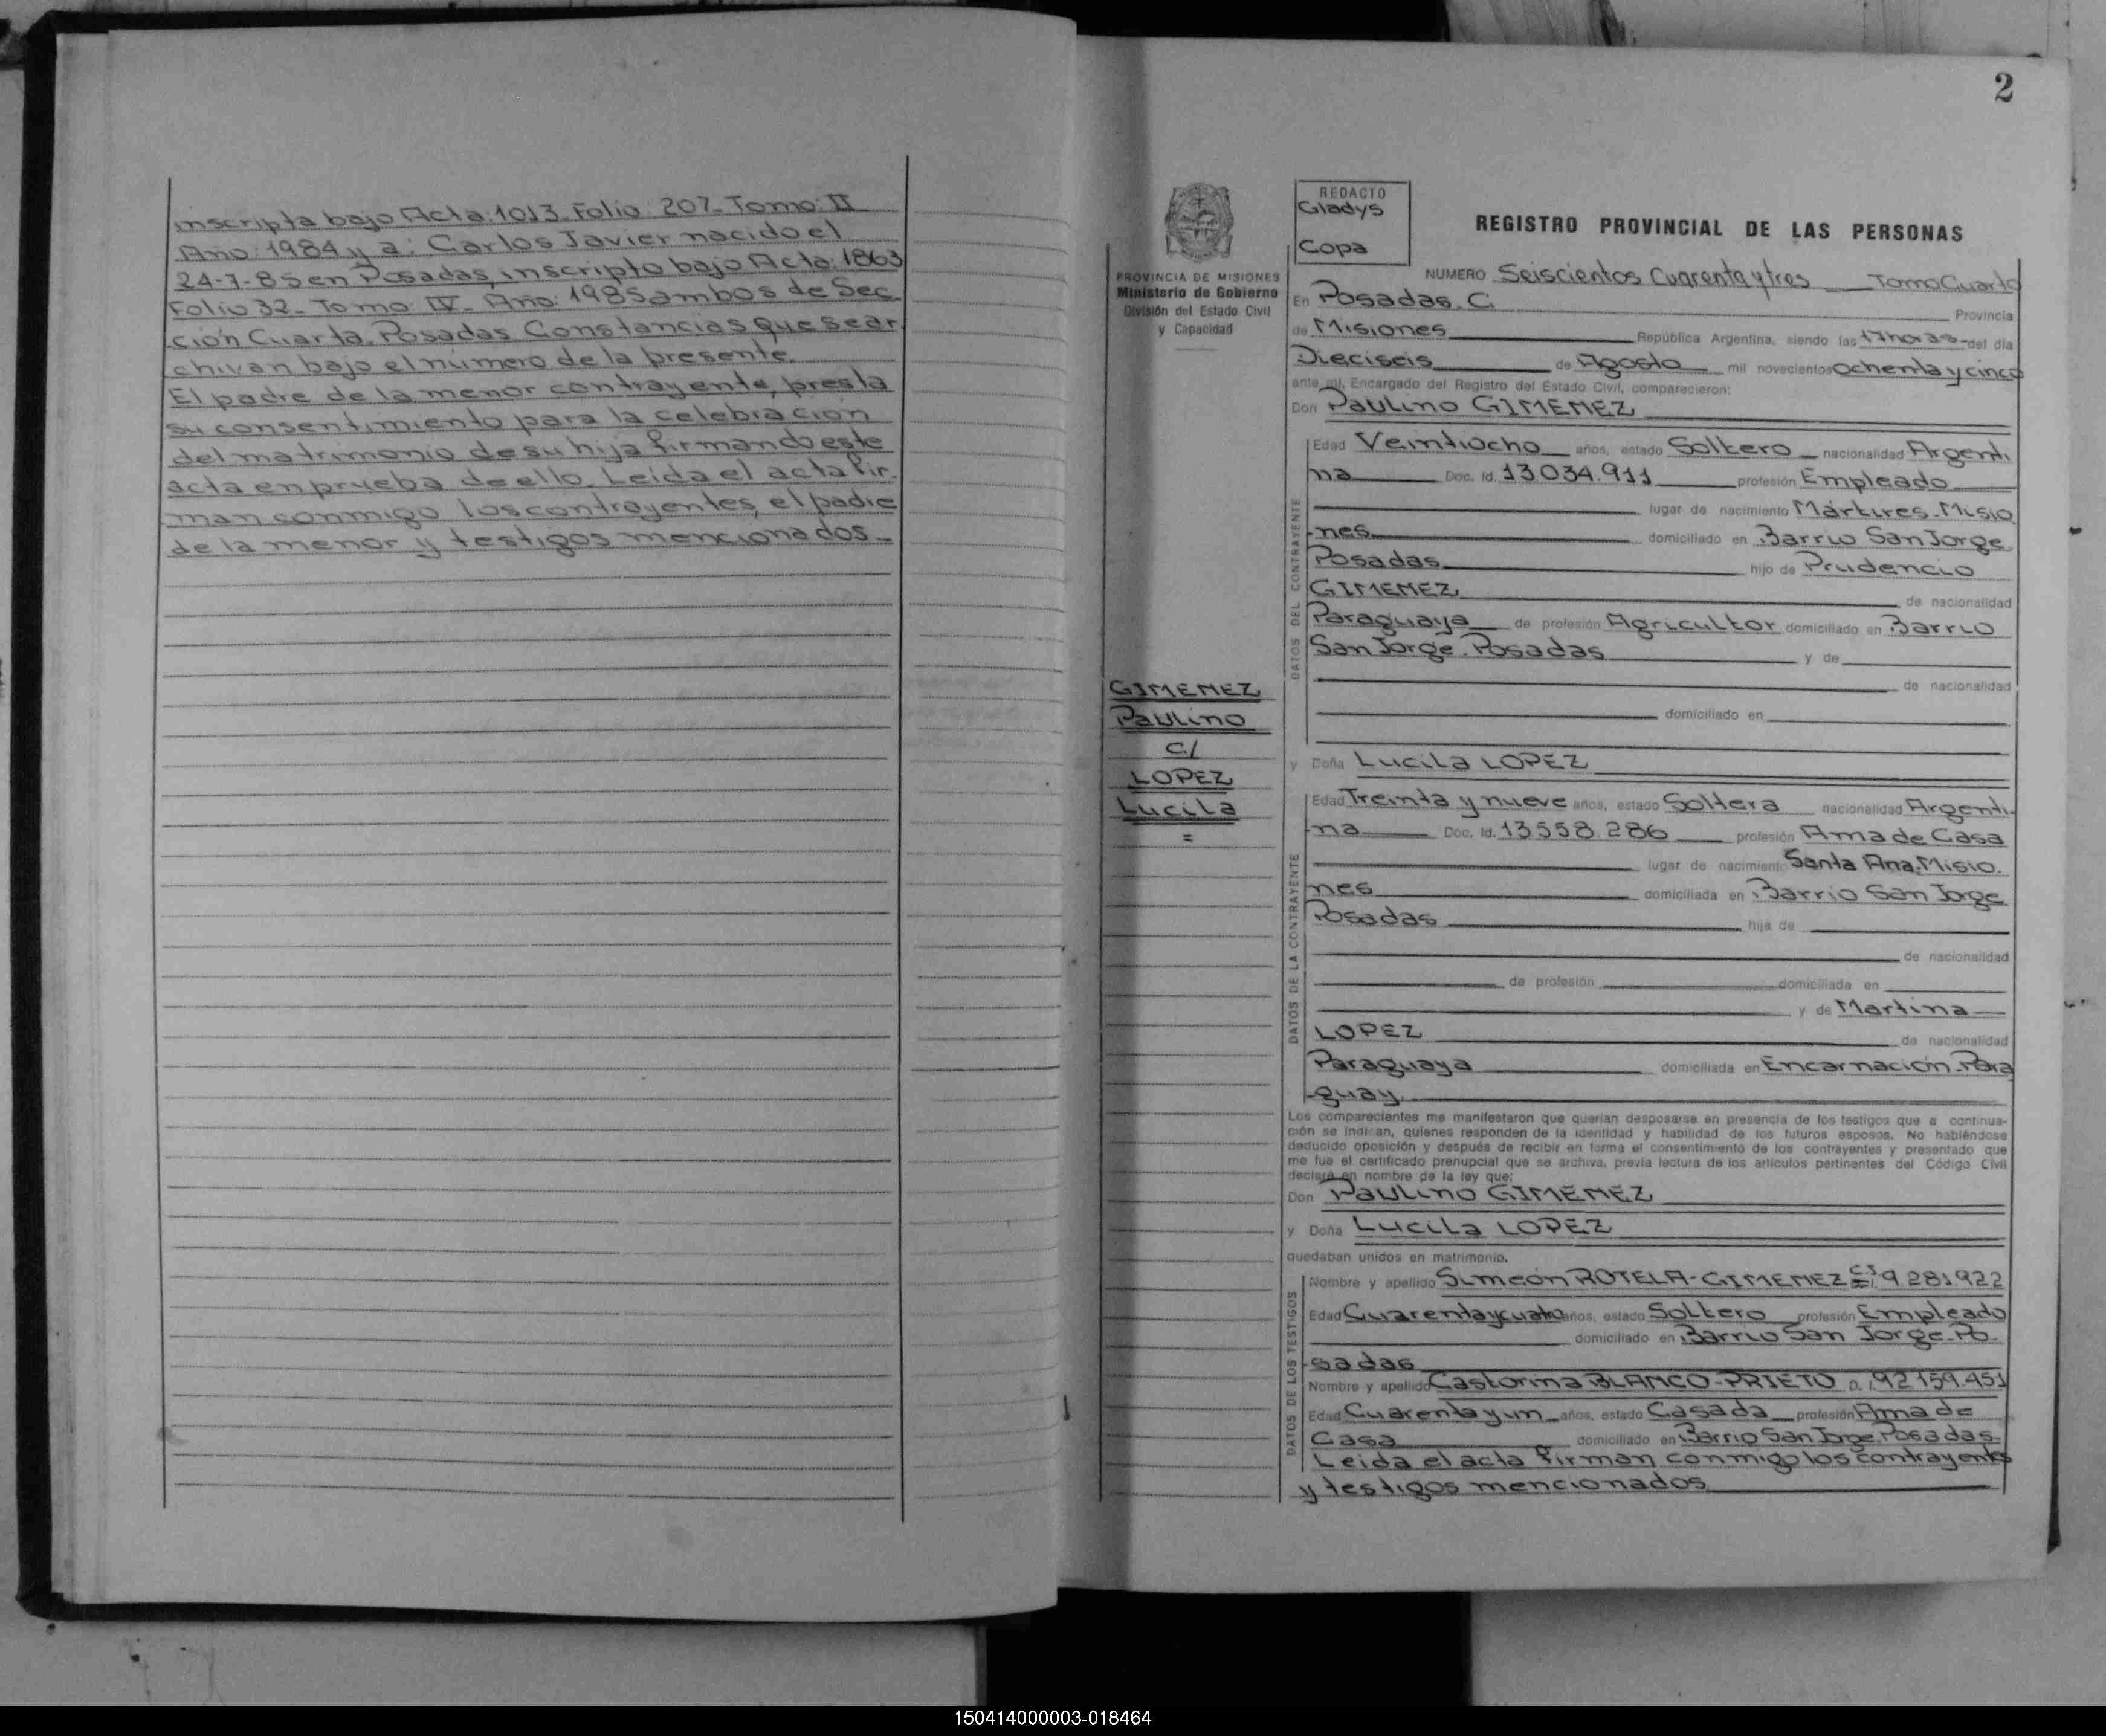 inscripta bajo Acta: 1013. Folio: 207. Tomo: II
Año: 1984 y a: Carlos Javier nacido el
24-7-85 en Posadas, inscripto bajo Acta: 1863
Folio 32. Tomo: IV. Año: 1985 ambos de Sec
ción Cuarta. Posadas Constancias que se ar
chivan bajo el número de la presente.
El padre de la menor contrayente, presta
su consentimiento para la celebración
del matrimonio de su hija firmando este
acta en prueba de ello. Leida el acta fir.
man conmigo los contrayentes, el padre
de la menor y testigos mencionados.
2
REDACTO
Gladys
Copa
REGISTRO PROVINCIAL DE LAS PERSONAS
PROVINCIA DE MISIONES
Ministerio de Gobierno
División del Estado Civil
y Capacidad
GIMENEZ
Paulino
c/
LOPEZ
Lucila
=
NUMERO Seiscientos Cuarenta y tres Tomo Cuarto
En Posadas. C. Provincia
de Misiones República Argentina, siendo las 17 horas del día
Dieciseis de Agosto mil novecientos Ochenta y cinco
ante mi, Encargado del Registro del Estado Civil, comparecieron:
Don Paulino GIMENEZ
DATOS DEL CONTRAYENTE
Edad Veintiocho años, estado Soltero nacionalidad Argenti
na Doc. Id. 13.034.911 profesión Empleado
lugar de nacimiento Mártires. Misio
nes domiciliado en Barrio San Jorge
Posadas hijo de Prudencio
GIMENEZ de nacionalidad
Paraguaya de profesión Agricultor domiciliado en Barrio
San Jorge. Posadas y de
de nacionalidad
domiciliado en
y Doña Lucila LOPEZ
DATOS DE LA CONTRAYENTE
Edad Treinta y nueve años, estado Soltera nacionalidad Argenti
na Doc. Id. 13.558.286 profesión Ama de Casa
lugar de nacimiento Santa Ana. Misio.
nes domiciliada en Barrio San Jorge
Posadas hija de
de nacionalidad
de profesión domiciliada en
y de Martina
LOPEZ de nacionalidad
Paraguaya domiciliada en Encarnación. Para
guay
Los comparecientes me manifestaron que querían desposarse en presencia de los testigos que a continua-
ción se indican, quienes responden de la identidad y habilidad de los futuros esposos. No habiéndose
deducido oposición y después de recibir en forma el consentimiento de los contrayentes y presentado que
me fue el certificado prenupcial que se archiva, previa lectura de los artículos pertinentes del Código Civil
declaré en nombre de la ley que:
Don Paulino GIMENEZ
y Doña Lucila LOPEZ
quedaban unidos en matrimonio.
DATOS DE LOS TESTIGOS
Nombre y apellido Simeón ROTELA-GIMENEZ C.I 9.281.922
Edad Cuarenta y cuatro años, estado Soltero profesión Empleado
domiciliado en Barrio San Jorge. Po.
sadas
Nombre y apellido Castorina BLANCO-PRIETO D.I. 92.159.451
Edad Cuarenta y un años, estado Casada profesión Ama de
Casa domiciliado en Barrio San Jorge. Posadas
Leida el acta firman conmigo los contrayentes
y testigos mencionados
150414000003-018464